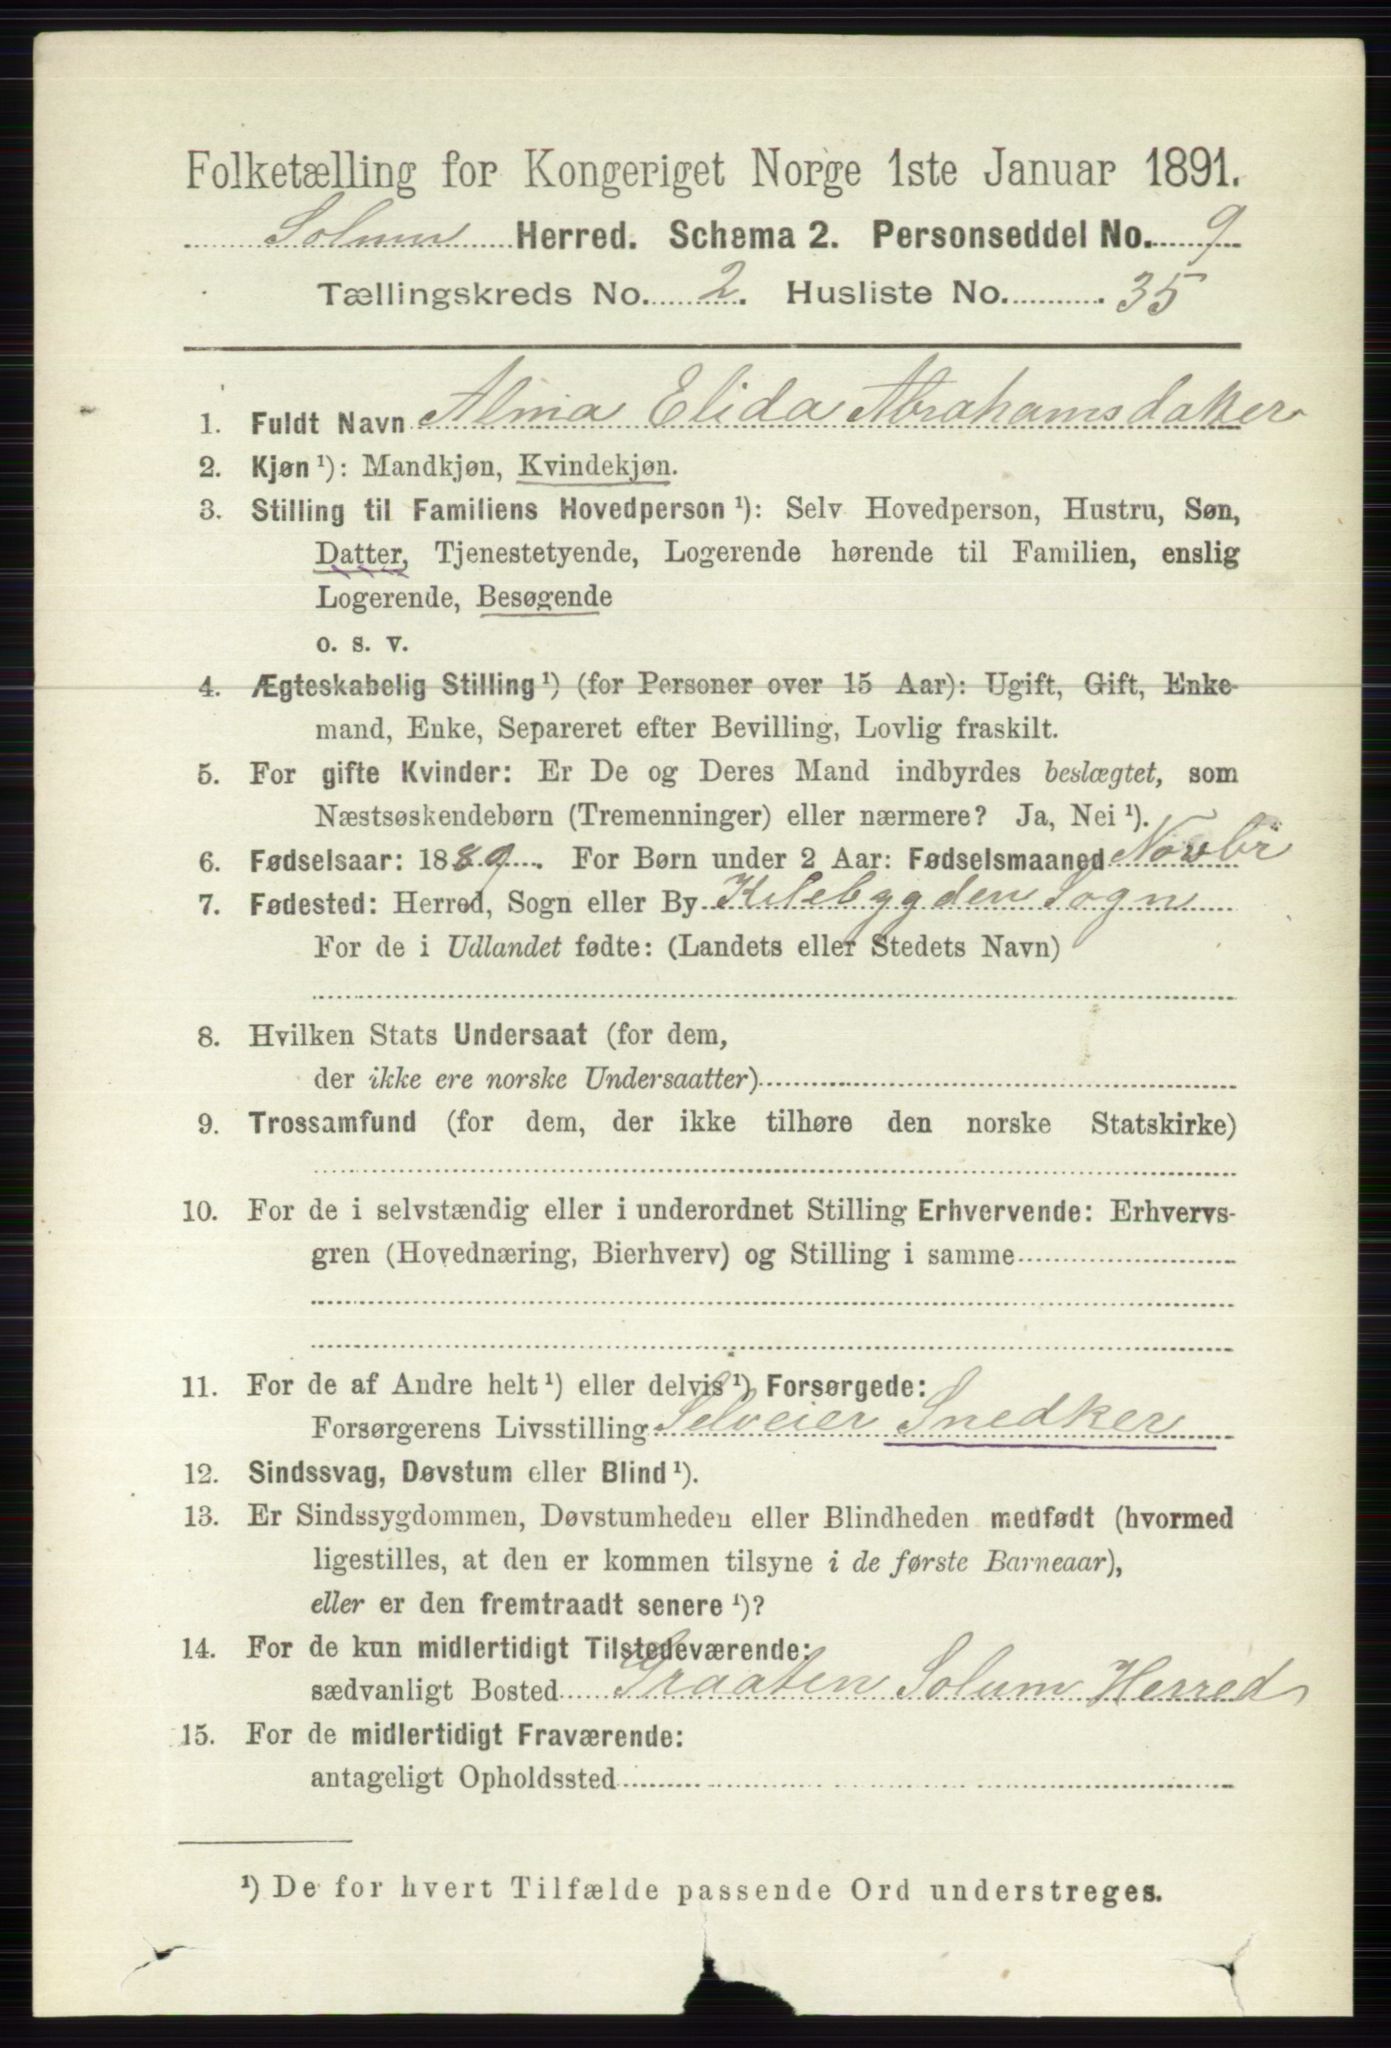 Folketælling for Kongeriget Norge 1ste Januar 1891.
Solum Herred. Schema 2. Personseddel No. 9
Tællingskreds No. 2. Husliste No. 35
1. Fuldt Navn Alma Elida Abrahamsdatter
2. Kjøn ¹): Mandkjøn, Kvindekjøn.
3. Stilling til Familiens Hovedperson ¹): Selv Hovedperson, Hustru, Søn,
Datter, Tjenestetyende, Logerende hørende til Familien, enslig
Logerende, Besøgende
o. s. v.
4. Ægteskabelig Stilling ¹) (for Personer over 15 Aar): Ugift, Gift, Enke-
mand, Enke, Separeret efter Bevilling, Lovlig fraskilt.
5. For gifte Kvinder: Er De og Deres Mand indbyrdes beslægtet, som
Næstsøskendebørn (Tremenninger) eller nærmere? Ja, Nei ¹).
6. Fødselsaar: 1889. For Børn under 2 Aar: Fødselsmaaned Novbr
7. Fødested: Herred, Sogn eller By Kilebygden Sogn
For de i Udlandet fødte: (Landets eller Stedets Navn)
8. Hvilken Stats Undersaat (for dem,
der ikke ere norske Undersaatter)
9. Trossamfund (for dem, der ikke tilhøre den norske Statskirke)
10. For de i selvstændig eller i underordnet Stilling Erhvervende: Erhvervs-
gren (Hovednæring, Bierhverv) og Stilling i samme
11. For de af Andre helt ¹) eller delvis ¹) Forsørgede:
Forsørgerens Livsstilling Selveier Snedker
12. Sindssvag, Døvstum eller Blind ¹).
13. Er Sindssygdommen, Døvstumheden eller Blindheden medfødt (hvormed
ligestilles, at den er kommen tilsyne i de første Barneaar),
eller er den fremtraadt senere ¹)?
14. For de kun midlertidigt Tilstedeværende:
sædvanligt Bosted Graaten Solum Herred
15. For de midlertidigt Fraværende:
antageligt Opholdssted
¹) De for hvert Tilfælde passende Ord understreges.